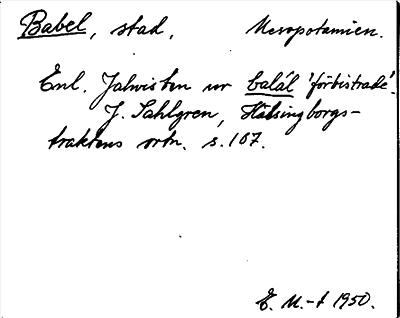 Babel, stad, Mesopotamien.
Enl. Jahvisten ur balál 'förbistrade'.
J. Sahlgren, Hälsingborgs-
traktens ortn. s. 167.
E. M.-t 1950.